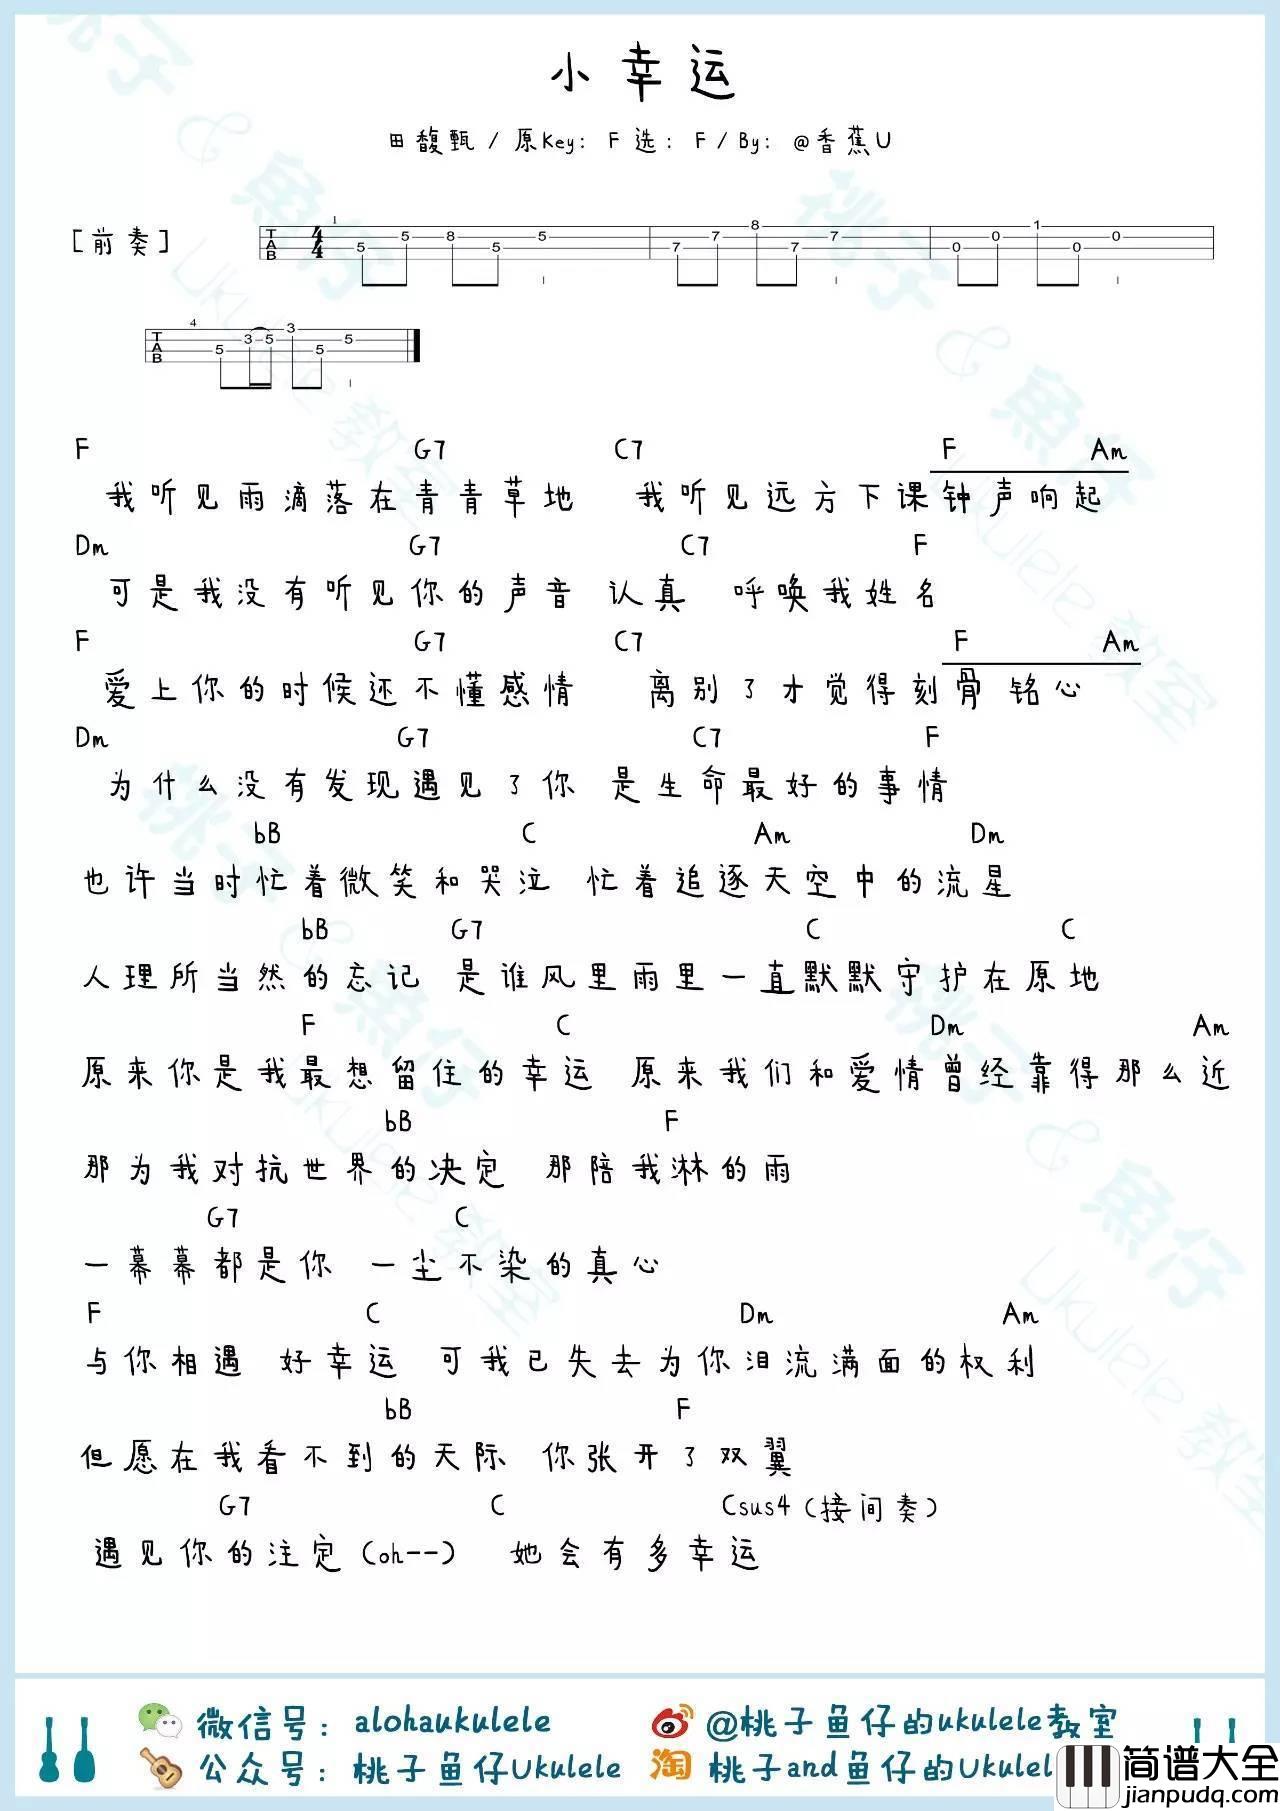 小幸运
田馥甄 / 原Key: F 选: F / By: @香蕉U
[前奏]
T A B 4 4 1 5 5 8 5 5 7 7 8 7 7 0 0 1 0 0
T A B 4 5 3 5 3 5 5
F G7 C7 F Am
我听见雨滴落在青青草地 我听见远方下课钟声响起
Dm G7 C7 F
可是我没有听见你的声音 认真 呼唤我姓名
F G7 C7 F Am
爱上你的时候还不懂感情 离别了才觉得刻骨 铭心
Dm G7 C7 F
为什么没有发现遇见了你 是生命最好的事情
bB C Am Dm
也许当时忙着微笑和哭泣 忙着追逐天空中的流星
bB G7 C C
人理所当然的忘记 是谁风里雨里一直默默守护在原地
F C Dm Am
原来你是我最想留住的幸运 原来我们和爱情曾经靠得那么近
bB F
那为我对抗世界的决定 那陪我淋的雨
G7 C
一幕幕都是你 一尘不染的真心
F C Dm Am
与你相遇 好幸运 可我已失去为你泪流满面的权利
bB F
但愿在我看不到的天际 你张开了双翼
G7 C Csus4 (接间奏)
遇见你的注定 (oh--) 她会有多幸运
微信号: alohaukulele @桃子鱼仔的ukulele教室
公众号: 桃子鱼仔Ukulele 淘 桃子and鱼仔的Ukulel
简谱大全
jianpudq.com
桃子&魚仔
Ukulele 教室